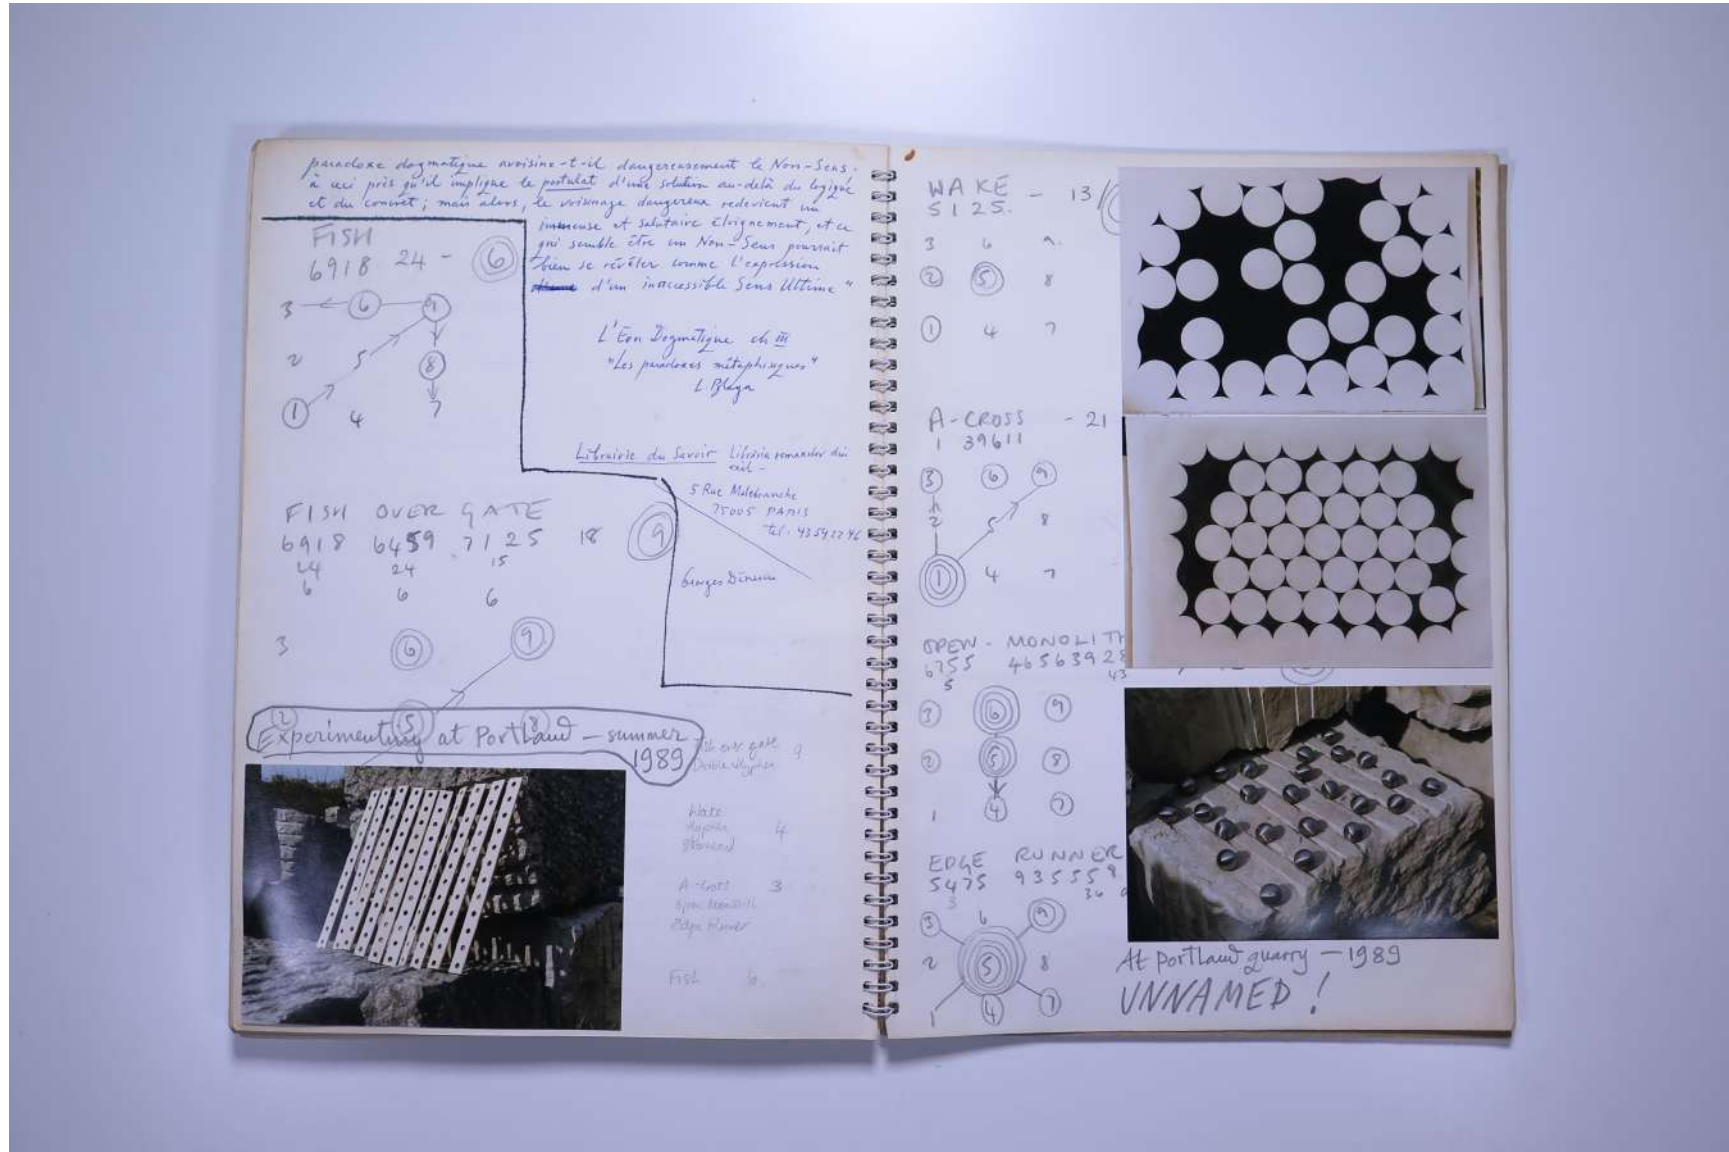 paradoxe dogmatique avoisine-t-il dangereusement le Non-Sens.
à ceci près qu'il implique le postulat d'une solution au-delà du logique
et du concret; mais alors, le voisinage dangereux redevient un
immense et salutaire éloignement, et ce
qui semble être un Non-Sens pourrait
bien se révéler comme l'expression
d'un inaccessible Sens Ultime"
L'Eon Dogmatique ch III
"Les paradoxes métaphysiques"
L. Blaga
FISH
6918 24 - 6
3 6 9
2 5 8
1 4 7
Librairie du Savoir
5 Rue Malebranche
75005 PARIS
tel. 43542246
Georges
FISH OVER GATE
6918 6459 7125 18 9
24 24 15
6 6 6
3 6 9
2 5 8
Experimenting at Portland — summer
1989
Fish over gate 9
Wake 4
A-Cross 3
Open Monolith
Edge Runner
Fish 6.
WAKE - 13/
5125.
3 6 9.
2 5 8
1 4 7
A-CROSS - 21
1 39611
3 6 9
2 5 8
1 4 7
OPEN - MONOLITH
6755 4656392
5 43
3 6 9
2 5 8
1 4 7
EDGE RUNNER
5475 935559
3 36
3 6 9
2 5 8
1 4 7
At Portland quarry — 1989
UNNAMED!